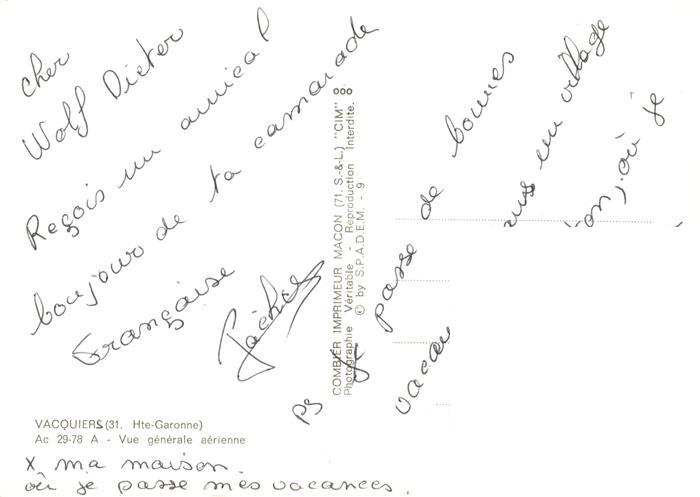 Cher
Wolf Dieter
Reçois un amical
bonjour de ta camarade
Française
ps je passe de bonnes
vacan
un village
où je
COMBIER IMPRIMEUR MACON (71. S.-&-L.) "CIM"
Photographie Véritable - Reproduction Interdite.
© by S.P.A.D.E.M. - 9
VACQUIERS (31. Hte-Garonne)
Ac 29-78 A - Vue générale aérienne
X, ma maison.
où je passe mes vacances.